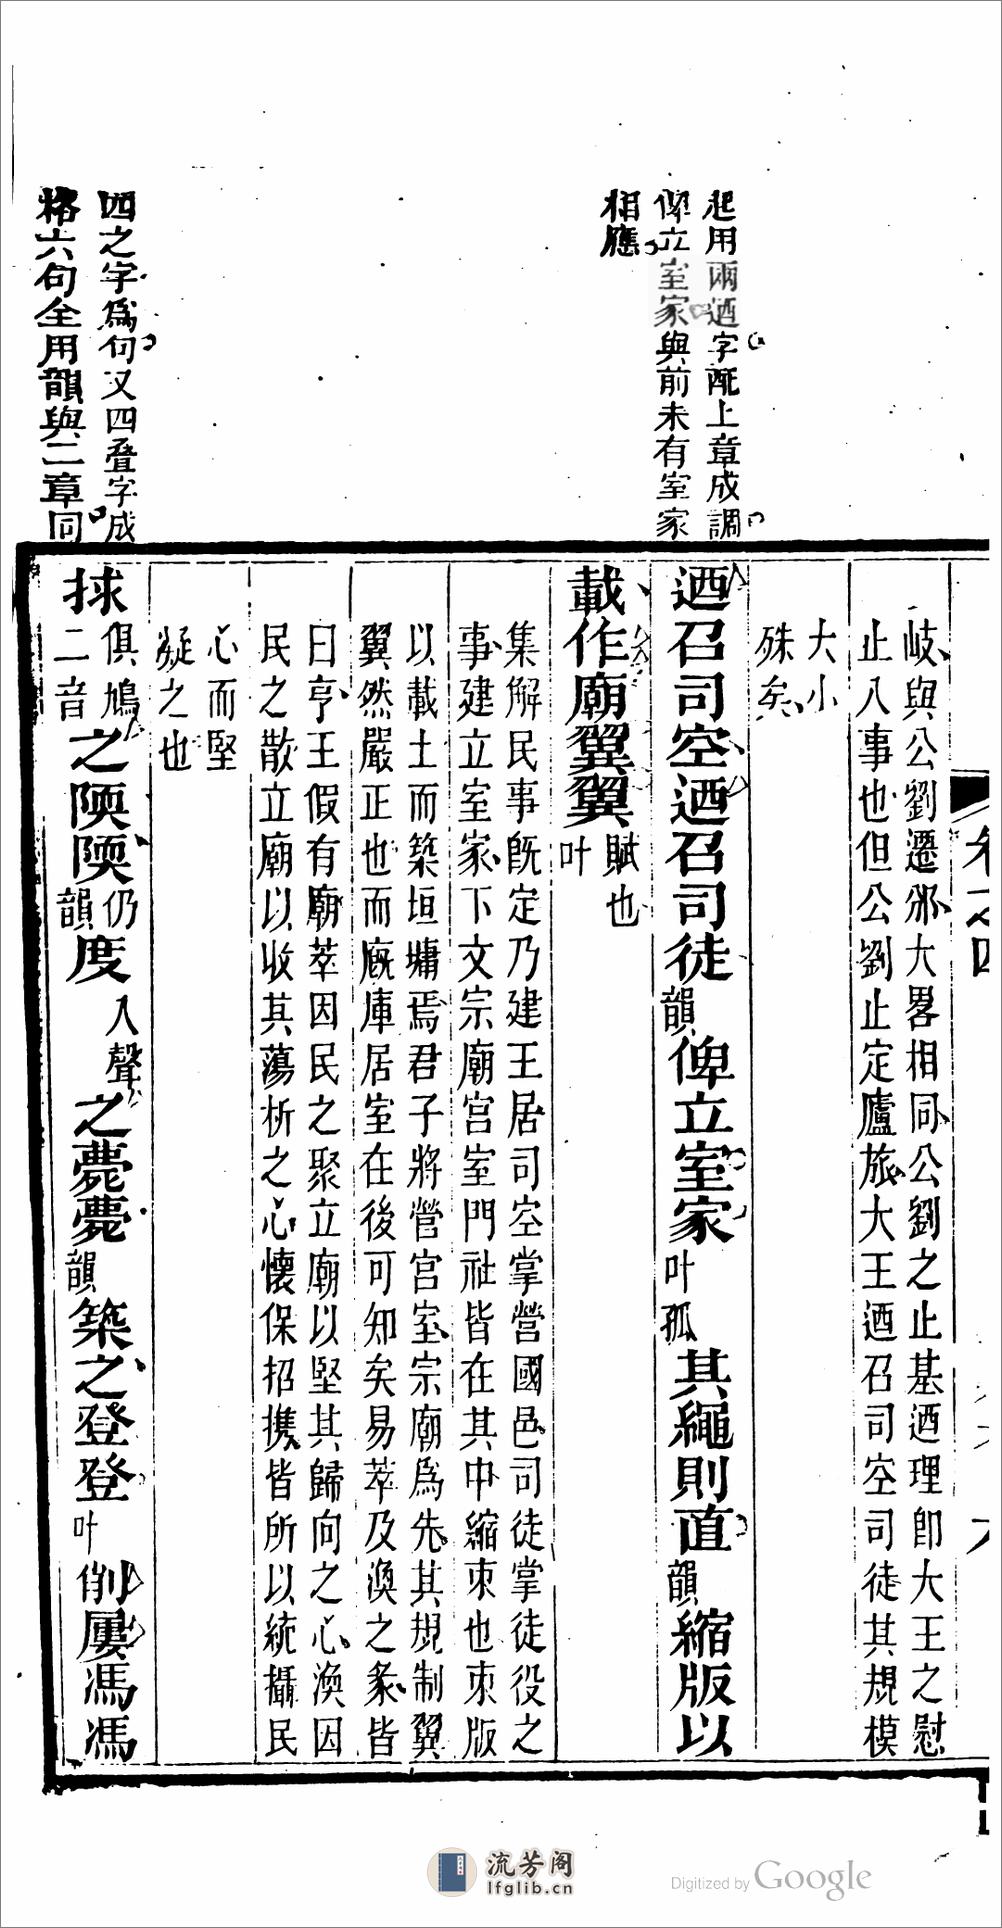 起用兩迺字配上章成調
俾立室家與前未有室家
相應
四之字爲句又四叠字成
格六句全用韻與二章同
岐與公劉遷邠大畧相同公劉之止基迺理卽大王之慰
止八事也但公劉止定廬旅大王迺召司空司徒其規模
大小
殊矣
迺召司空迺召司徒韻俾立室家叶孤其繩則直韻縮版以
載作廟翼翼叶賦也
集解民事旣定乃建王居司空掌營國邑司徒掌徒役之
事建立室家下文宗廟宮室門社皆在其中縮束也束版
以載土而築垣墉焉君子將營宮室宗廟爲先其規制翼
翼然嚴正也而廐庫居室在後可知矣易萃及渙之彖皆
曰亨王假有廟萃因民之聚立廟以堅其歸向之心渙因
民之散立廟以收其蕩析之心懷保招携皆所以統攝民
心而堅
凝之也
捄俱鳩二音之陾陾仍韻度入聲之薨薨韻築之登登叶削屢馮馮
卷之四
流芳阁
lfglib.cn
Digitized by Google